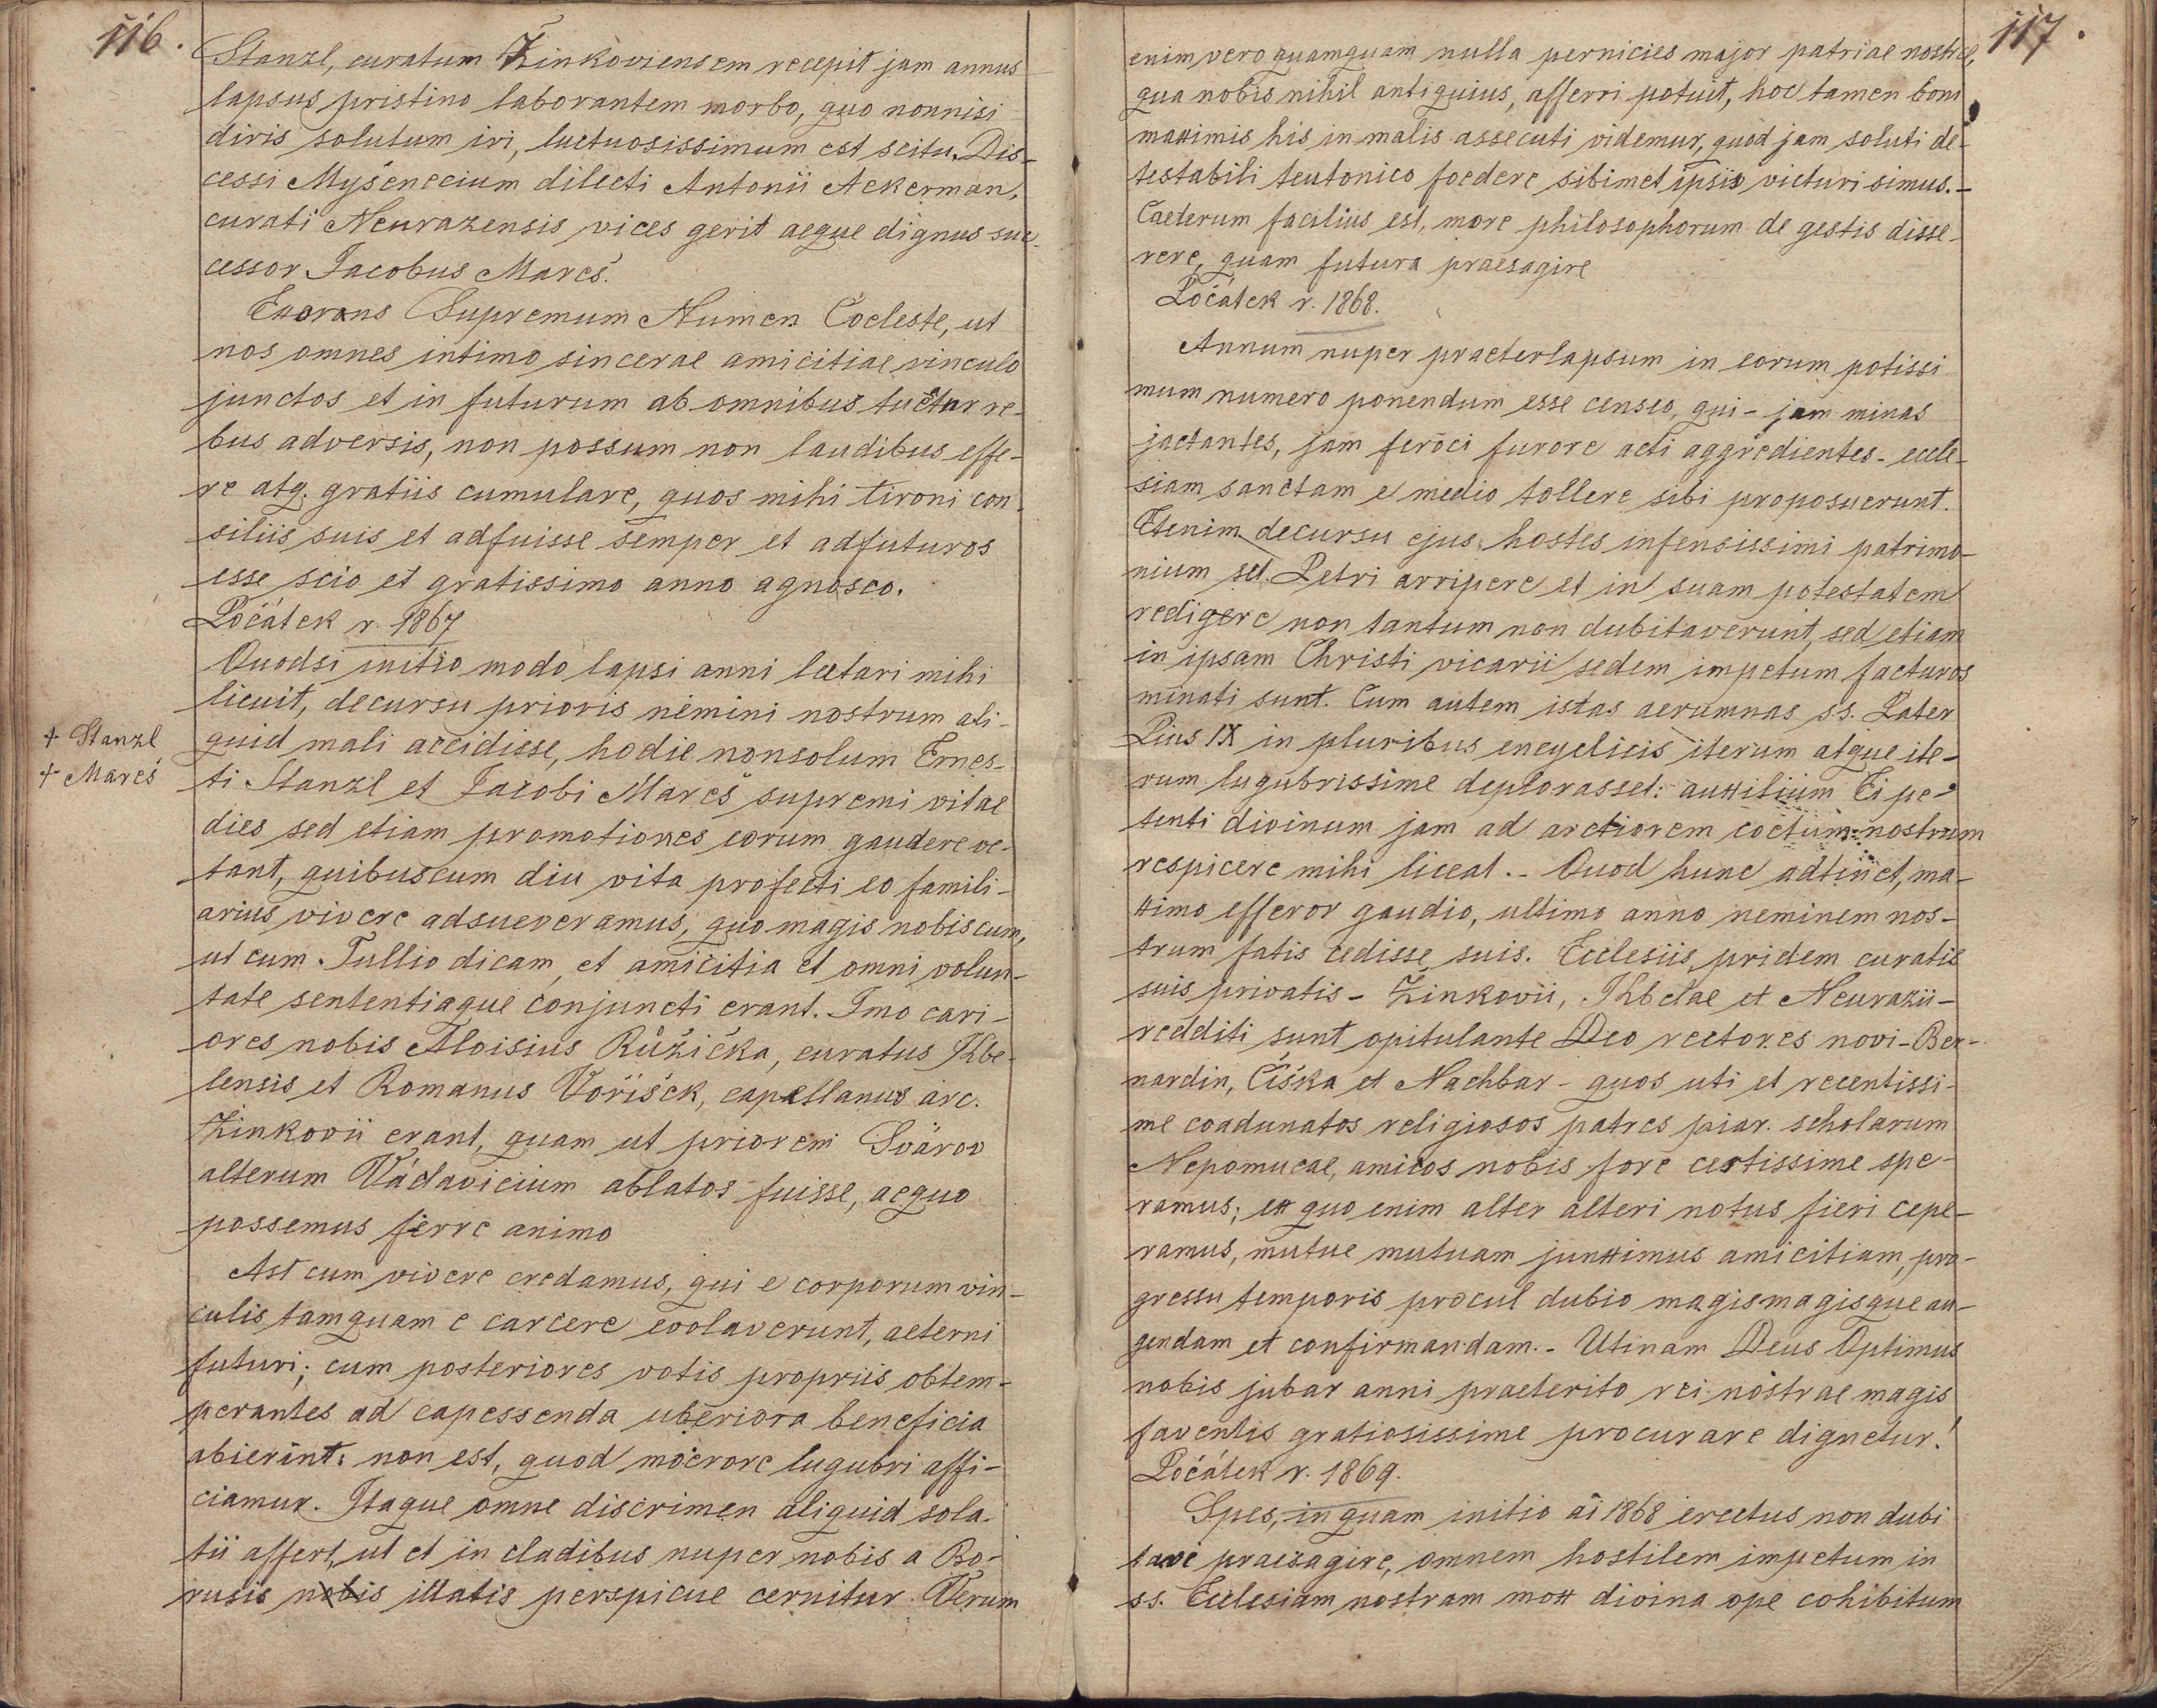 116.
Stanzl, curatum Žinkoviensem recepit jam annus
lapsus pristino laborantem morbo, quo nonnisi
diris solutum iri, luctuosissimum est scitu. Dis-
cessi Myšenecium dilecti Antonii Ackerman,
curati Neurazensis vices gerit aeque dignus suc-
cessor Jacobus Mareš.
Exorans Supremum Numen Coeleste, ut
nos omnes intimo sincerae amicitiae vinculo
junctos et in futurum ab omnibus tuetur re-
bus adversis, non possum non laudibus effe-
re atq. gratiis cumulare, quos mihi tironi con-
siliis suis et adfuisse semper et adfuturos
esse scio et gratissimo anno agnosco.
Počátek r. 1867
Quodsi initio modo lapsi anni laetari mihi
licuit, decursu prioris nemini nostrum ali-
quid mali accidisse, hodie nonsolum Ernes-
† Stanzl
† Mareš
ti Stanzl et Jacobi Mareš supremi vitae
dies sed etiam promotiones eorum gaudere ve-
tant, quibuscum diu vita profecti eo famili-
arius vivere adsueveramus, quo magis nobiscum,
ut cum Tullio dicam, et amicitia et omni volun-
tate sententiaque conjuncti erant. Imo cari-
ores nobis Aloisius Růžička, curatus Kbe-
lensis et Romanus Voříšek, capellanus arc.
Žinkovii erant, quam ut priorem Svárov
alterum Vádavicium ablatos fuisse, aequo
possemus ferre animo
Ast cum vivere credamus, qui e corporum vin-
culis tamquam e carcere evolaverunt, aeterni
futuri; cum posteriores votis propriis obtem-
perantes ad capessenda uberiora beneficia
abierint: non est, quod moerore lugubri affi-
ciamur. Itaque omne discrimen aliquid sola-
tii affert, ut et in cladibus nuper nobis a Bo-
rusis nobis illatis perspicue cernitur. Verum
117.
enim vero quamquam nulla pernicies major patriae nostrae,
qua nobis nihil antiquius, afferri potuit, hoc tamen boni
maximis his in malis assecuti videmur, quod jam soluti de-
testabili teutonico foedere sibimet ipsis victuri simus. -
Caeterum facilius est, more philosophorum de gestis disse-
rere, quam futura praesagire
Počátek r. 1868.
Annum nuper praeterlapsum in eorum potissi
mum numero ponendum esse censeo, qui - jam minas
jactantes, jam feroci furore acti aggredientes - eccle-
siam sanctam e medio tollere sibi proposuerunt.
Etenim decursu ejus hostes infensissimi patrimo-
nium sct. Petri arripere et in suam potestatem
redigere non tantum non dubitaverunt, sed etiam
in ipsam Christi vicarii sedem impetum facturos
minati sunt. Cum autem istas aerumnas ss. Pater
Pius IX in pluribus encyclicis iterum atque ite-
rum lugubrissime deplorasset: auxilium Ei pe-
tenti divinum jam ad arctiorem coetum nostrum
respicere mihi liceat. - Quod hunc adtinet, ma-
ximo efferor gaudio, ultimo anno neminem nos-
trum fatis cedisse suis. Ecclesiis pridem curatis
suis privatis - Žinkovii, Kbelae et Neurazii -
redditi sunt opitulante Deo rectores novi - Ber-
nardin, Čiška et Nachbar - quos uti et recentissi-
me coadunatos religiosos patres piar. scholarum
Nepomucae, amicos nobis fore certissime spe-
ramus; ex quo enim alter alteri notus fieri cepe-
ramus, mutue mutuam junximus amicitiam, pro-
gressu temporis procul dubio magis magisque au-
gendam et confirmandam. - Utinam Deus Optimus
nobis jubar anni praeterito rei nostrae magis
faventis gratiosissime procurare dignetur!
Počátek r. 1869.
Spes, in quam initio ai 1868 erectus non dubi
tavi praesagire, omnem hostilem impetum in
ss. Ecclesiam nostram mox divina ope cohibitum